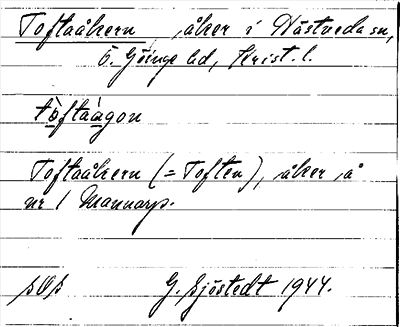 Toftaåkern, åker i Västveda sn,
Ö. Göinge hd, Krist. l.
tòftaágon
Toftaåkern (= Toften), åker å
nr 1 Mannarp.
G. Sjöstedt 1944.